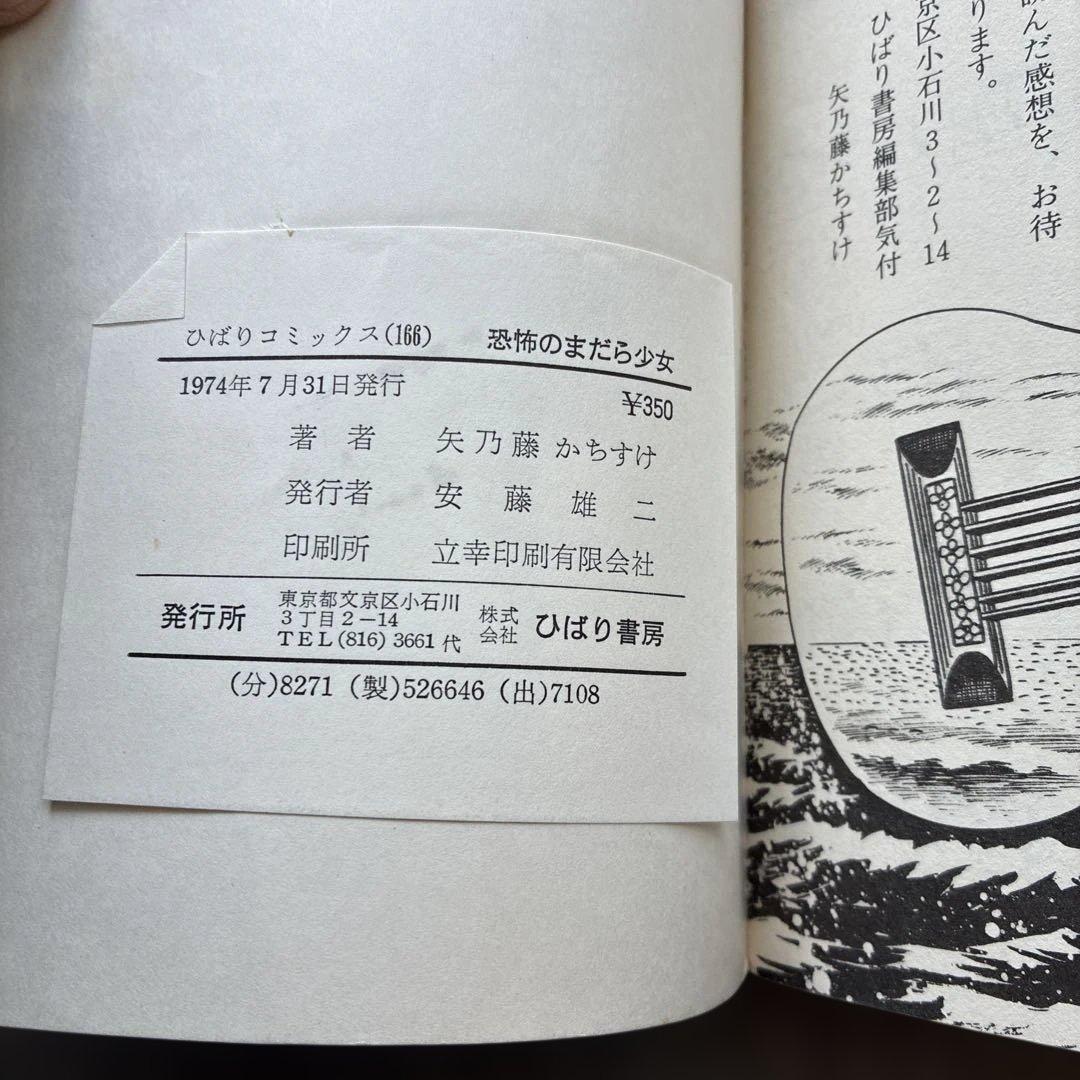 読んだ感想を、お待
ります。
京区小石川3~2~14
ひばり書房編集部気付
矢乃藤かちすけ
ひばりコミックス(166) 恐怖のまだら少女
1974年7月31日発行
¥350
著者 矢乃藤かちすけ
発行者 安藤雄二
印刷所 立幸印刷有限会社
発行所 東京都文京区小石川
3丁目2-14
TEL(816)3661代
株式会社 ひばり書房
(分)8271 (製)526646 (出)7108